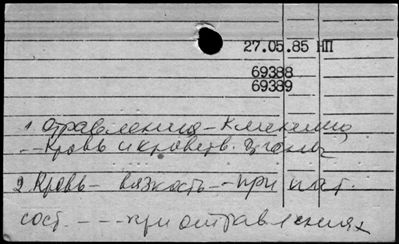 27.05.85 НП
69388
69389
1. Отравления – Клиника
– Кровь и кроветв.
2. Кровь – вязкость – при пат.
сост. – – – при отравлениях